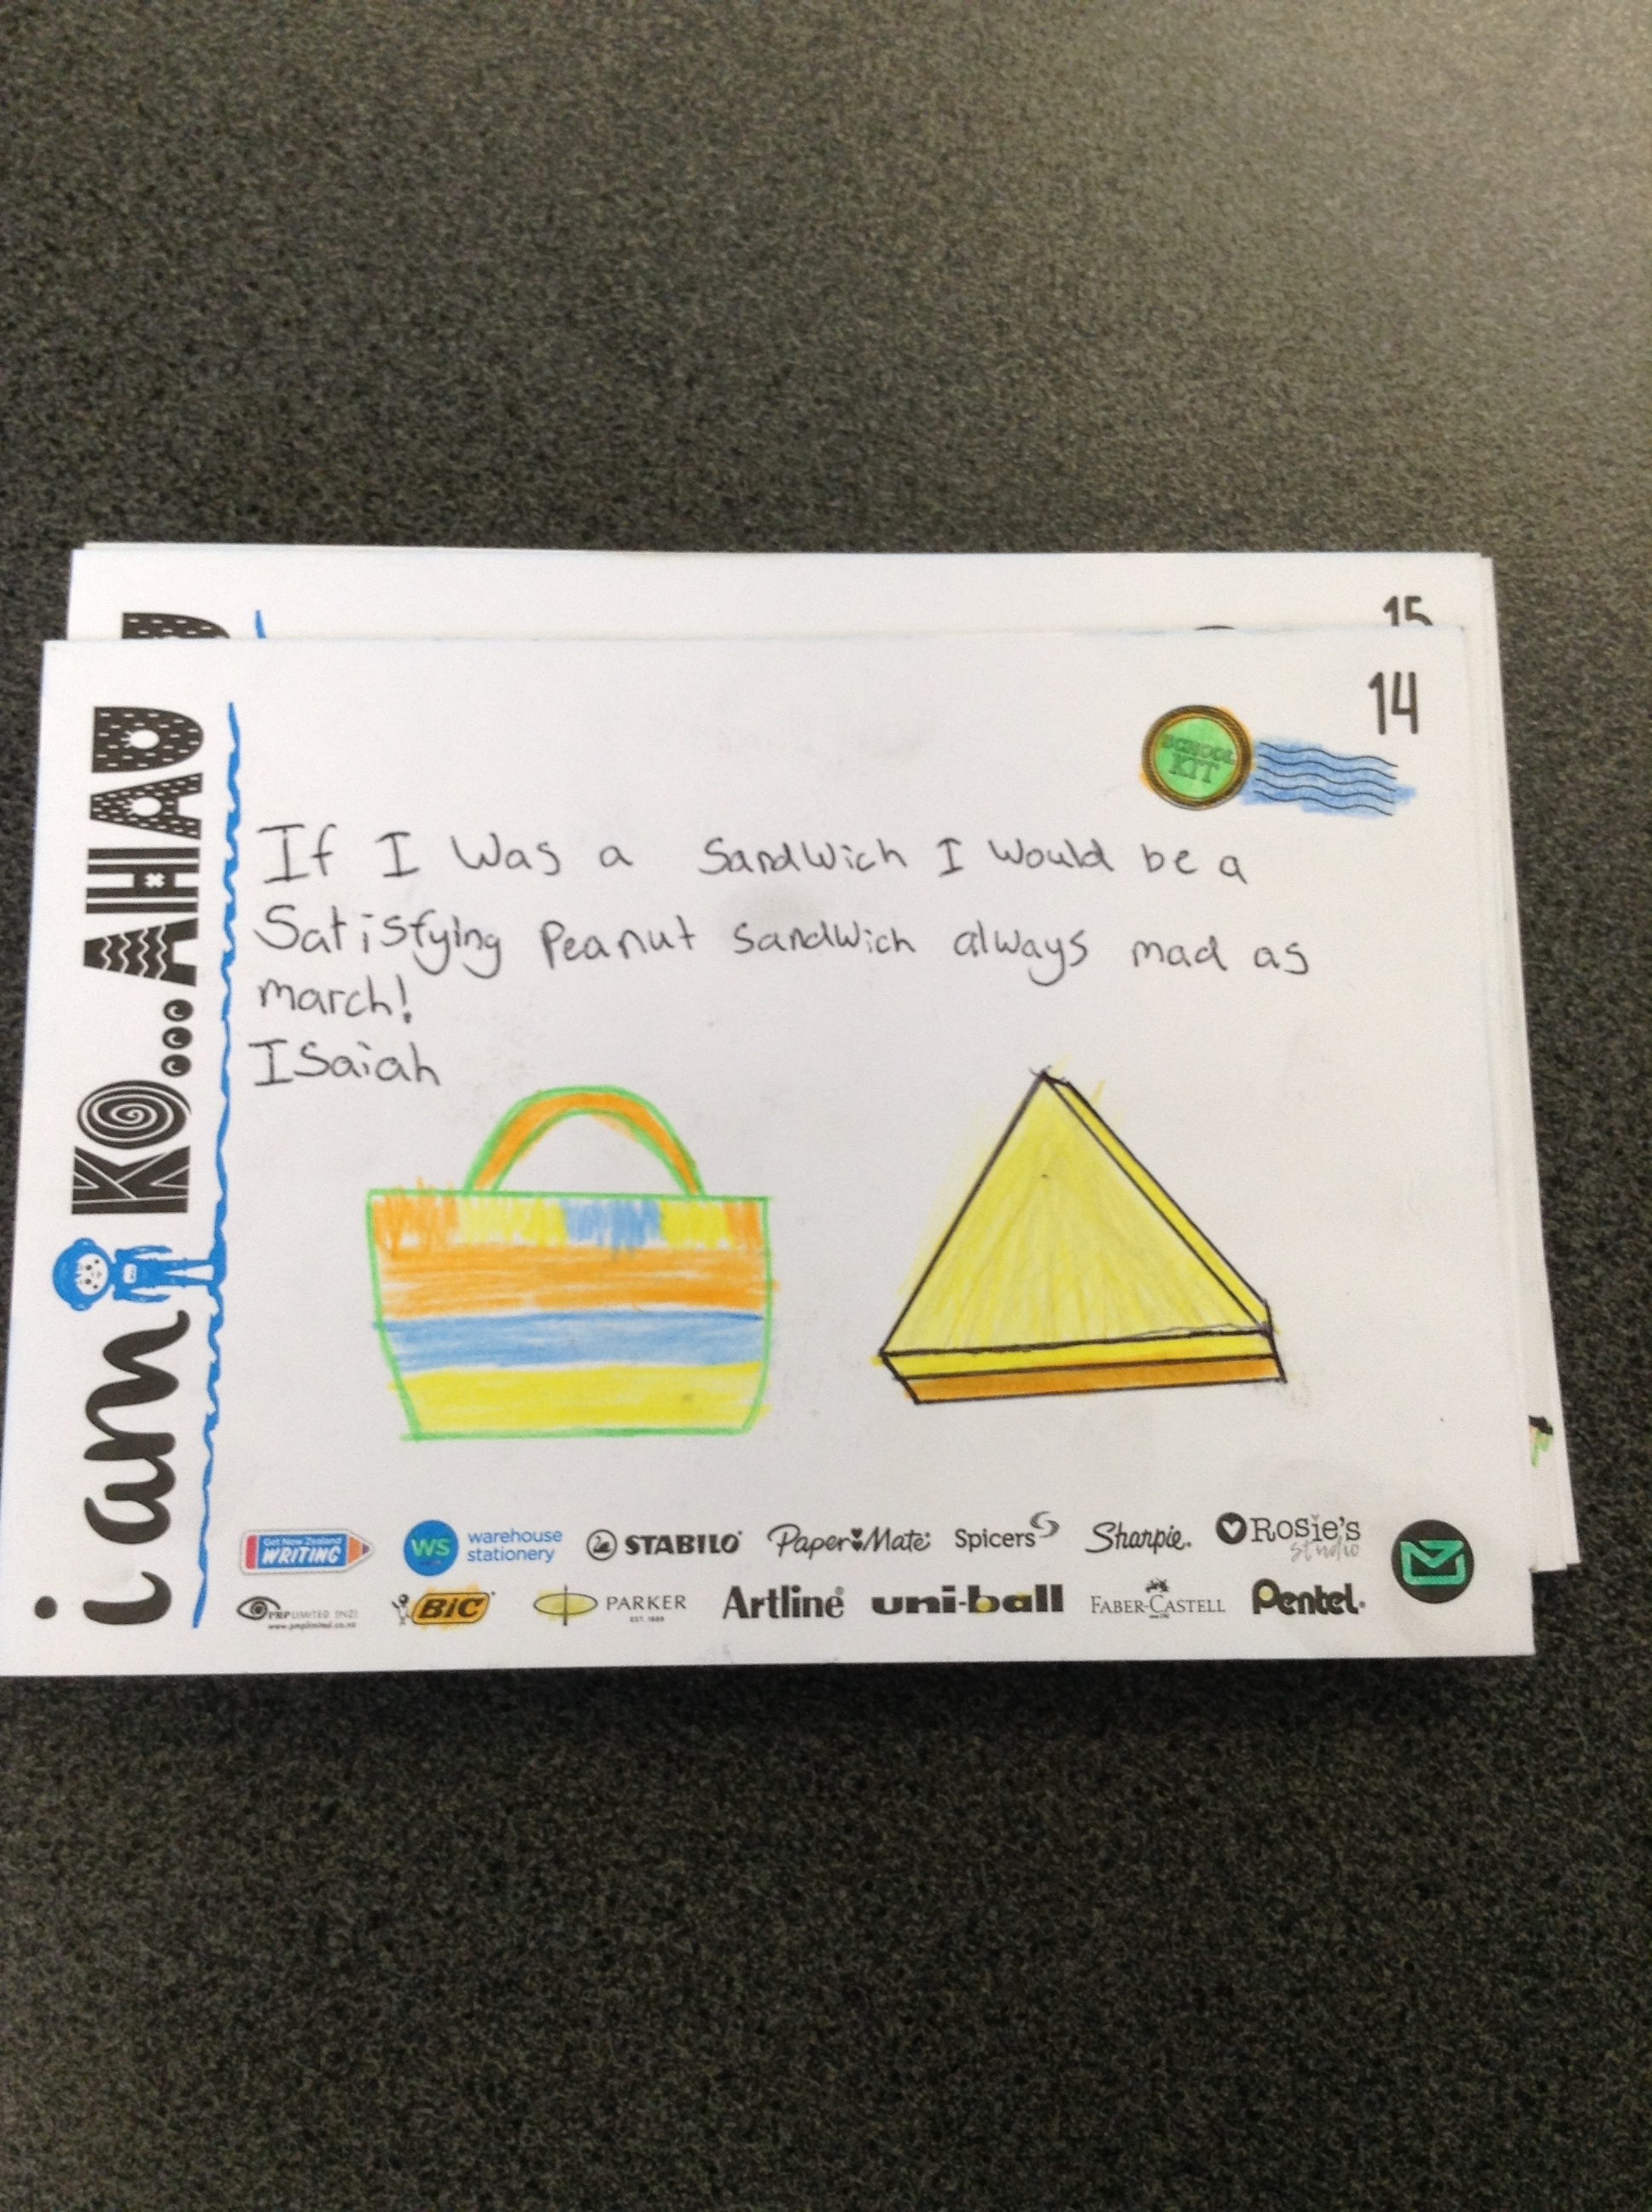 15
14
SCHOOL
KIT
i am KO...AHAU
If I Was a Sandwich I Would be a
Satisfying Peanut Sandwich always mad as
march!
ISaiah
Get New Zealand
WRITING
WS warehouse
stationery
STABILO
Paper Mate
Spicers
Sharpie.
ROSiE'S
studio
PMP LIMITED (NZ)
www.pmplimited.co.nz
BiC
PARKER
EST. 1888
Artline
uni-ball
FABER-CASTELL
Pentel